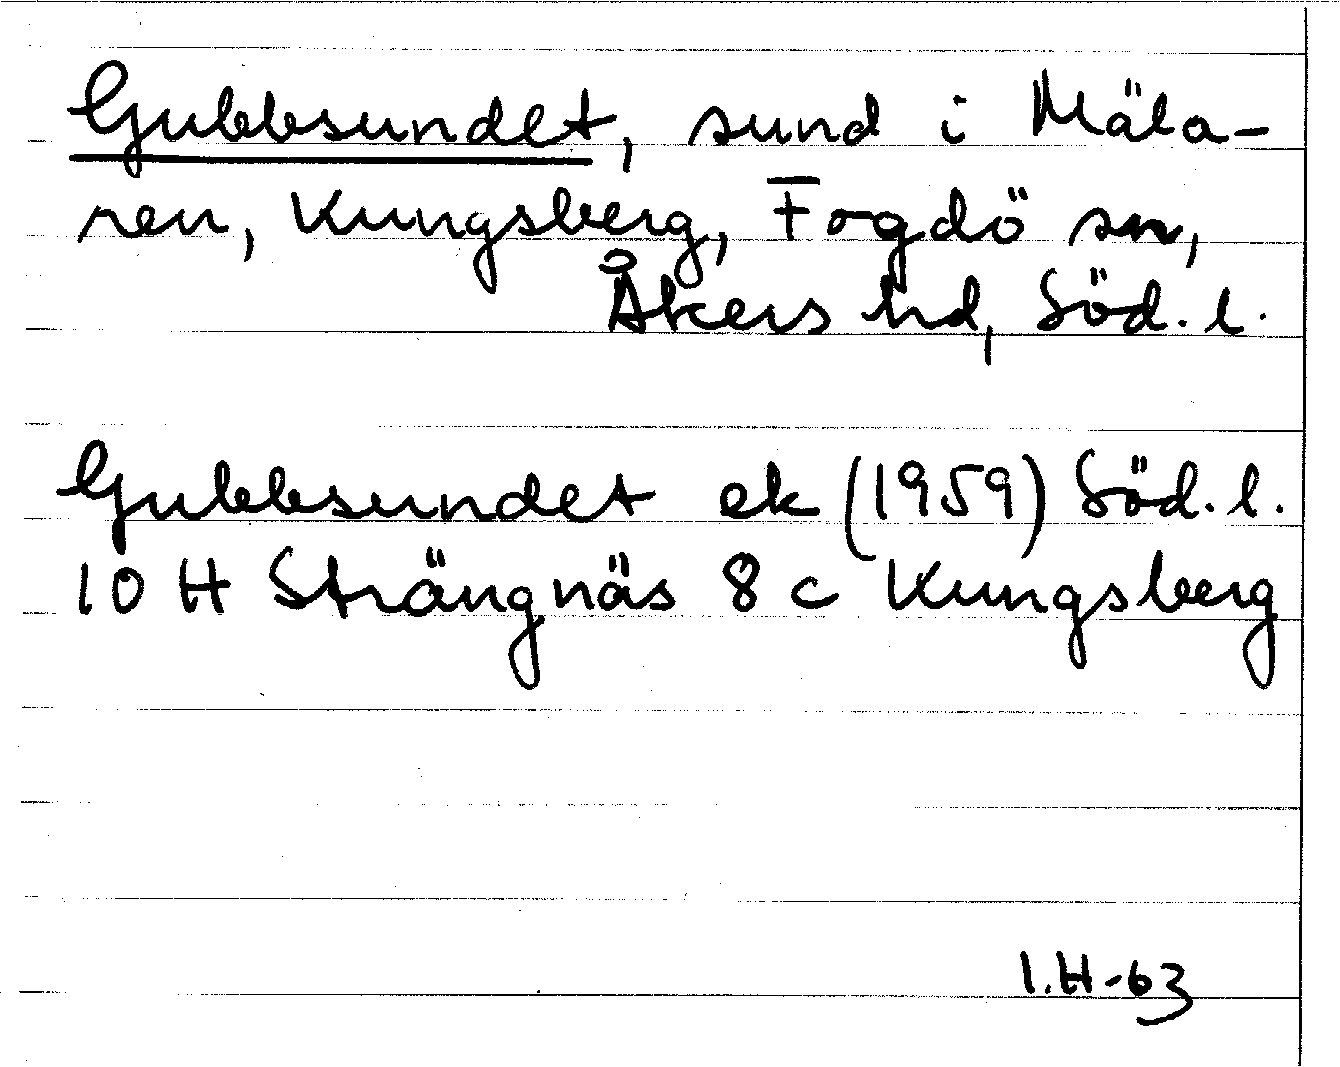 Gubbsundet, sund i Mäla-
ren, Kungsberg, Fogdö sn,
Åkers hd, Söd. l.
Gubbsundet ek (1959) Söd. l.
10 H Strängnäs 8 c Kungsberg
I.H-63